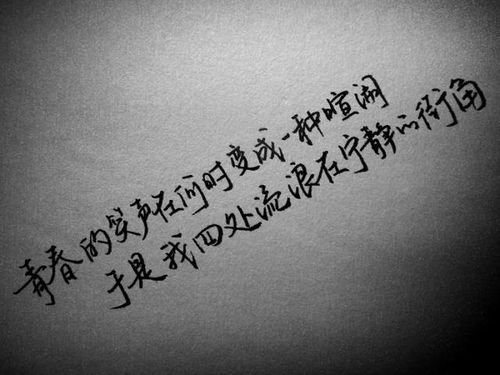 青春的笑声在何时变成一种喧闹
于是我四处流浪在宁静的街角